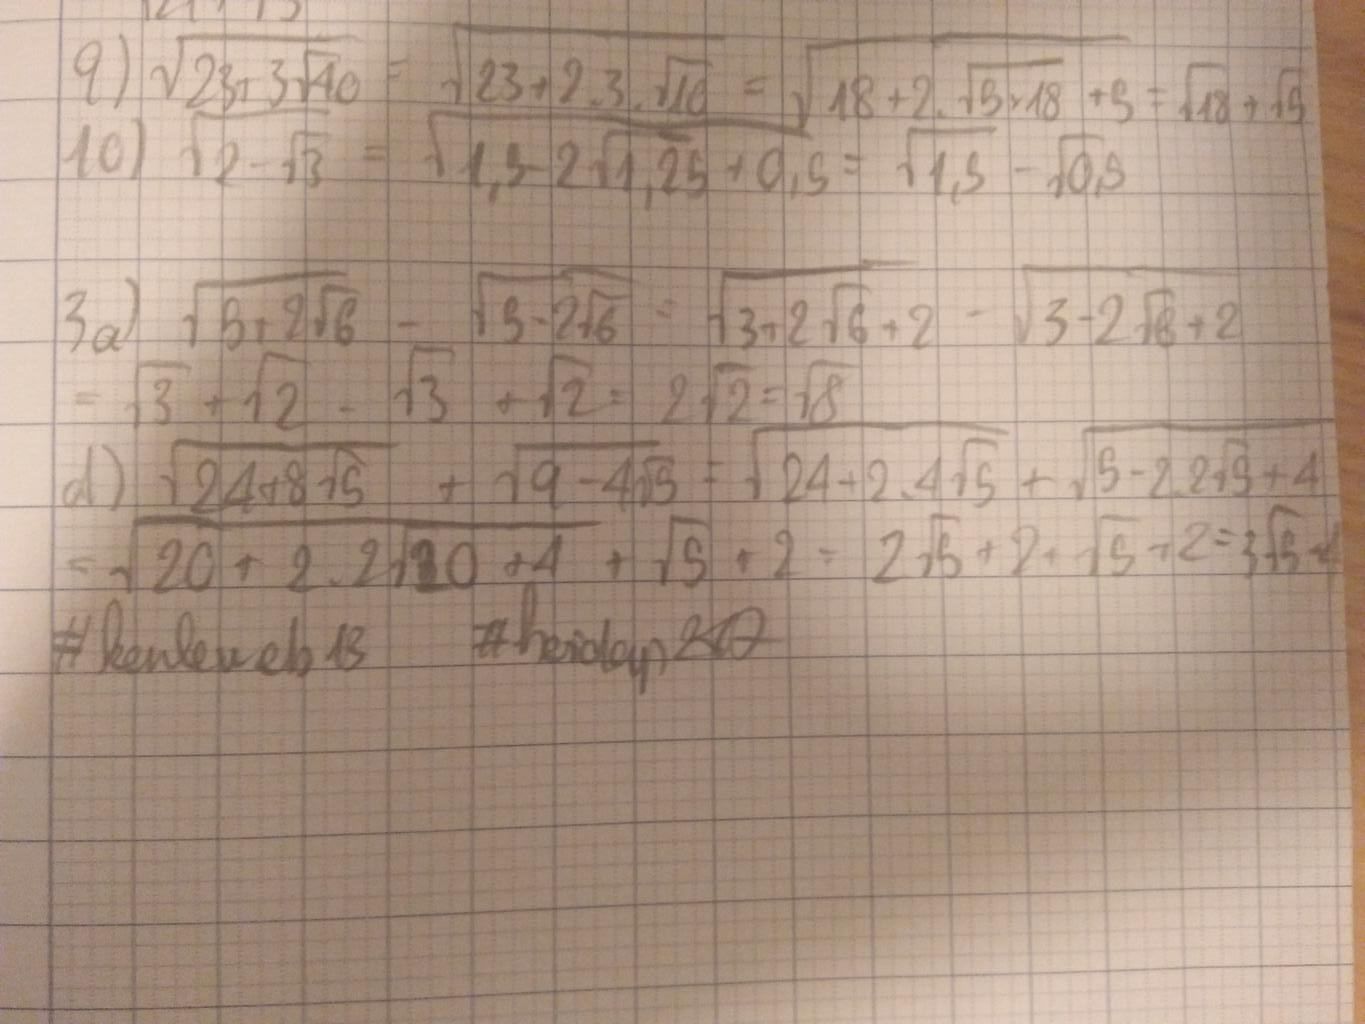 9) √(23+3√40) = √(23+2.3.√10) = √(18+2.√(5.18)+5) = √18+√5
10) √(2-√3) = √(1,5-2√1,25+0,5) = √1,5 - √0,5
3a) √(5+2√6) - √(5-2√6) = √(3+2√6+2) - √(3-2√6+2)
= √3 + √2 - √3 + √2 = 2√2 = √8
d) √(24+8√5) + √(9-4√5) = √(24+2.4√5) + √(5-2.2√5+4)
= √(20+2.2√20+4) + √5 + 2 = 2√5+2+√5+2=3√5+4
#kenleweb13 #heiday207